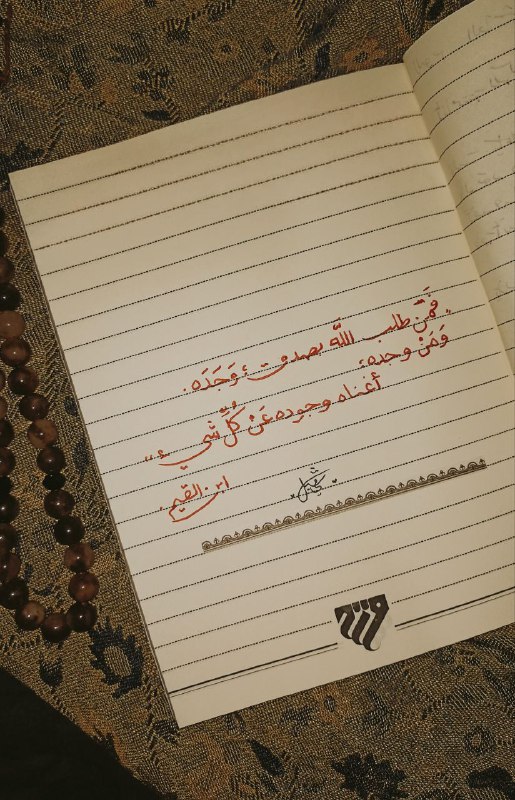 فَمَنْ طلب اللَّه بصدق، وَجَدَه.
وَمَنْ وجده،
أغناه وجوده عَنْ كُلِّ شيء"
ابن القيم.